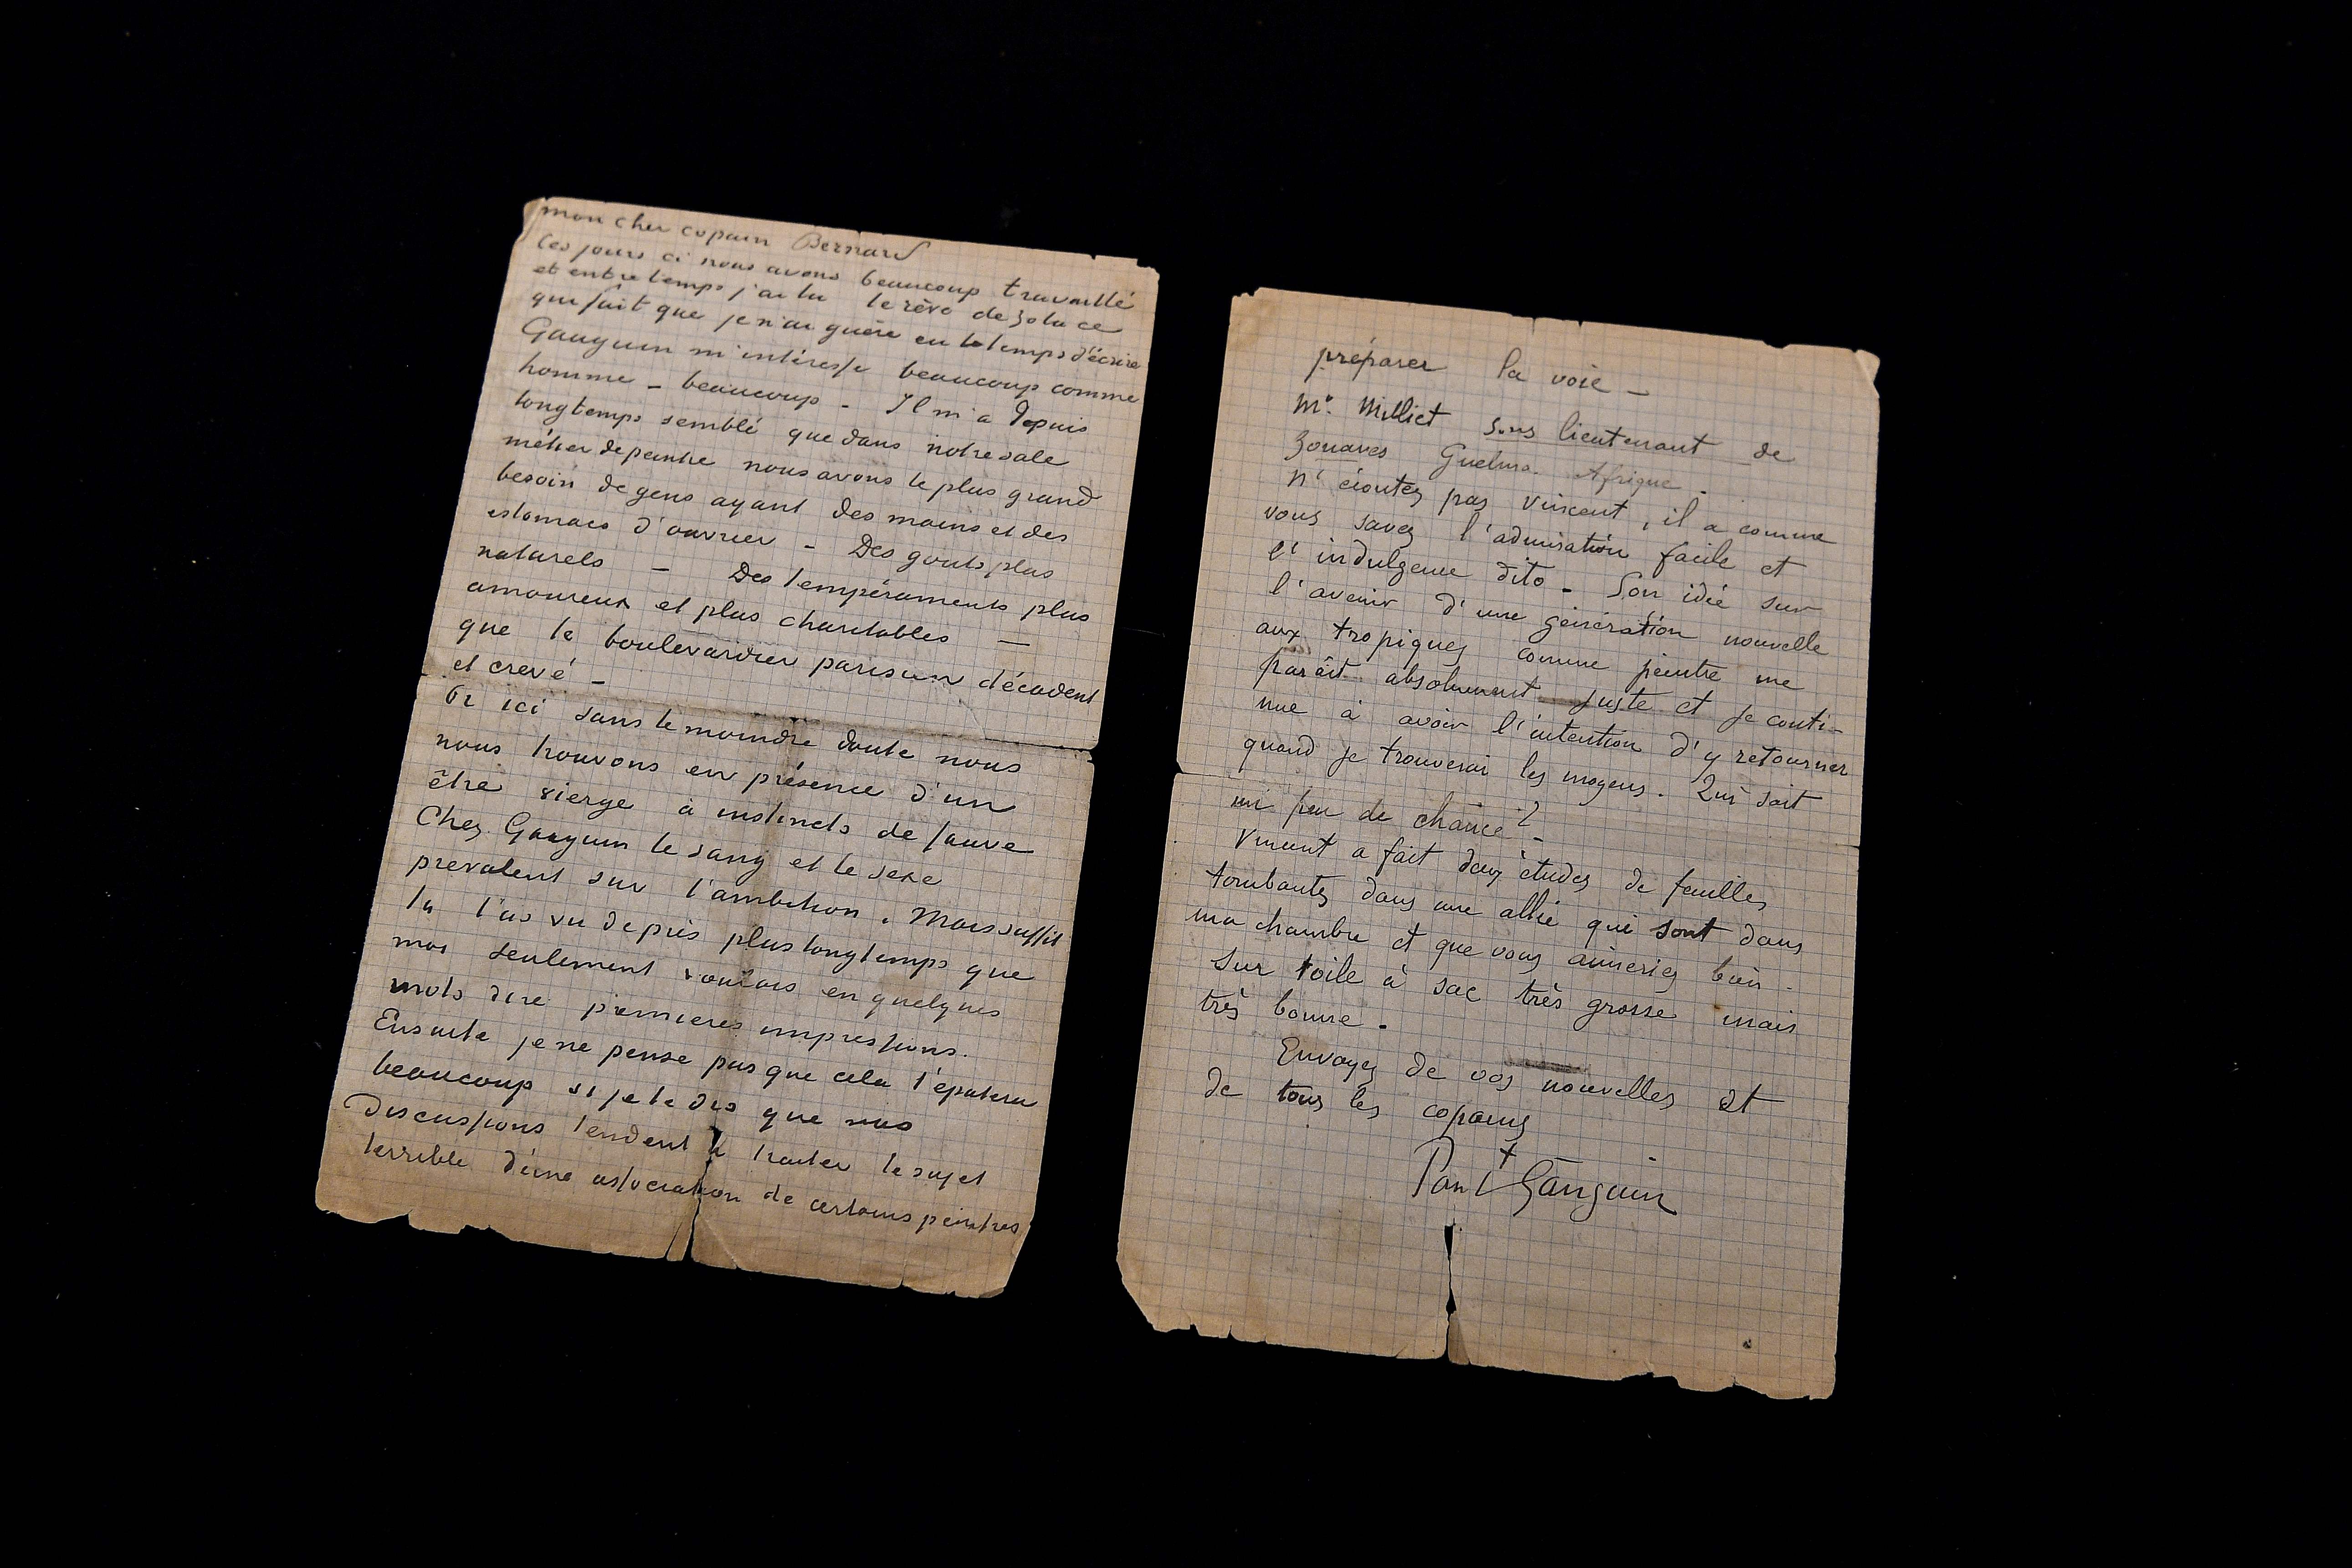 mon cher copain Bernard
Ces jours ci nous avons beaucoup travaillé
et entretemps j'ai lu le rêve de Zola ce
qui fait que je n'ai guère eu le temps d'écrire
Gauguin m'intéresse beaucoup comme
homme – beaucoup – Il m'a depuis
longtemps semblé que dans notre sale
métier de peintre nous avons le plus grand
besoin de gens ayant des mains et des
estomacs d'ouvrier – Des gouts plus
naturels – Des tempéraments plus
amoureux et plus charitables –
que le boulevardier parisien décadent
et crevé –
Or ici sans le moindre doute nous
nous trouvons en présence d'un
être vierge à instincts de fauve
Chez Gauguin le sang et le sexe
prevalent sur l'ambition. Mais suffit
tu l'as vu de près plus longtemps que
moi seulement voulais en quelques
mots dire premieres impressions.
Ensuite je ne pense pas que cela t'épatera
beaucoup si je te dis que nos
Discussions tendent à traiter le sujet
terrible d'une association de certains peintres
préparer la voie –
Mr. Milliet sous lieutenant de
Zouaves Guelma. Afrique.
N'écoutez pas Vincent, il a comme
vous savez l'admiration facile et
l'indulgence dito – Son idée sur
l'avenir d'une génération nouvelle
aux tropiques comme peintre me
parâit absolument juste et je conti-
nue à avoir l'intention d'y retourner
quand je trouverai les moyens. Qui sait
un peu de chance? –
Vincent a fait deux études de feuilles
tombantes dans une allée qui sont dans
ma chambre et que vous aimeriez bien.
Sur toile à sac très grosse mais
très bonne.
Envoyez de vos nouvelles et
de tous les copains
Paul Gauguin